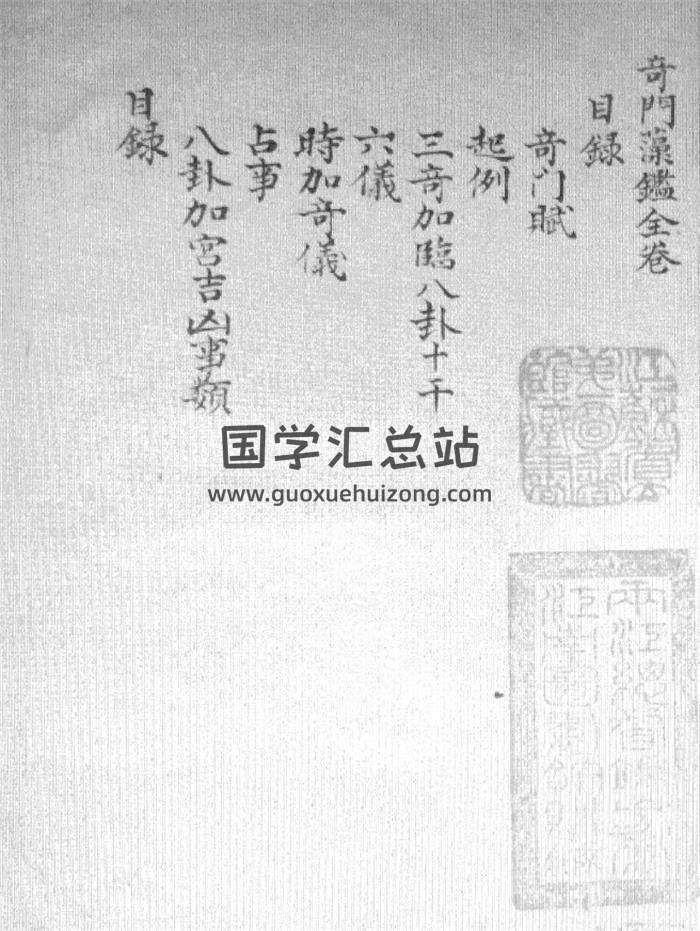 奇門藻鑑全卷
目録
奇门賦
起例
三奇加臨八卦十干
六儀
時加奇儀
占事
八卦加宮吉凶事類
目録
国学汇总站
www.guoxuehuizong.com
江蘇省立第一圖書館藏書